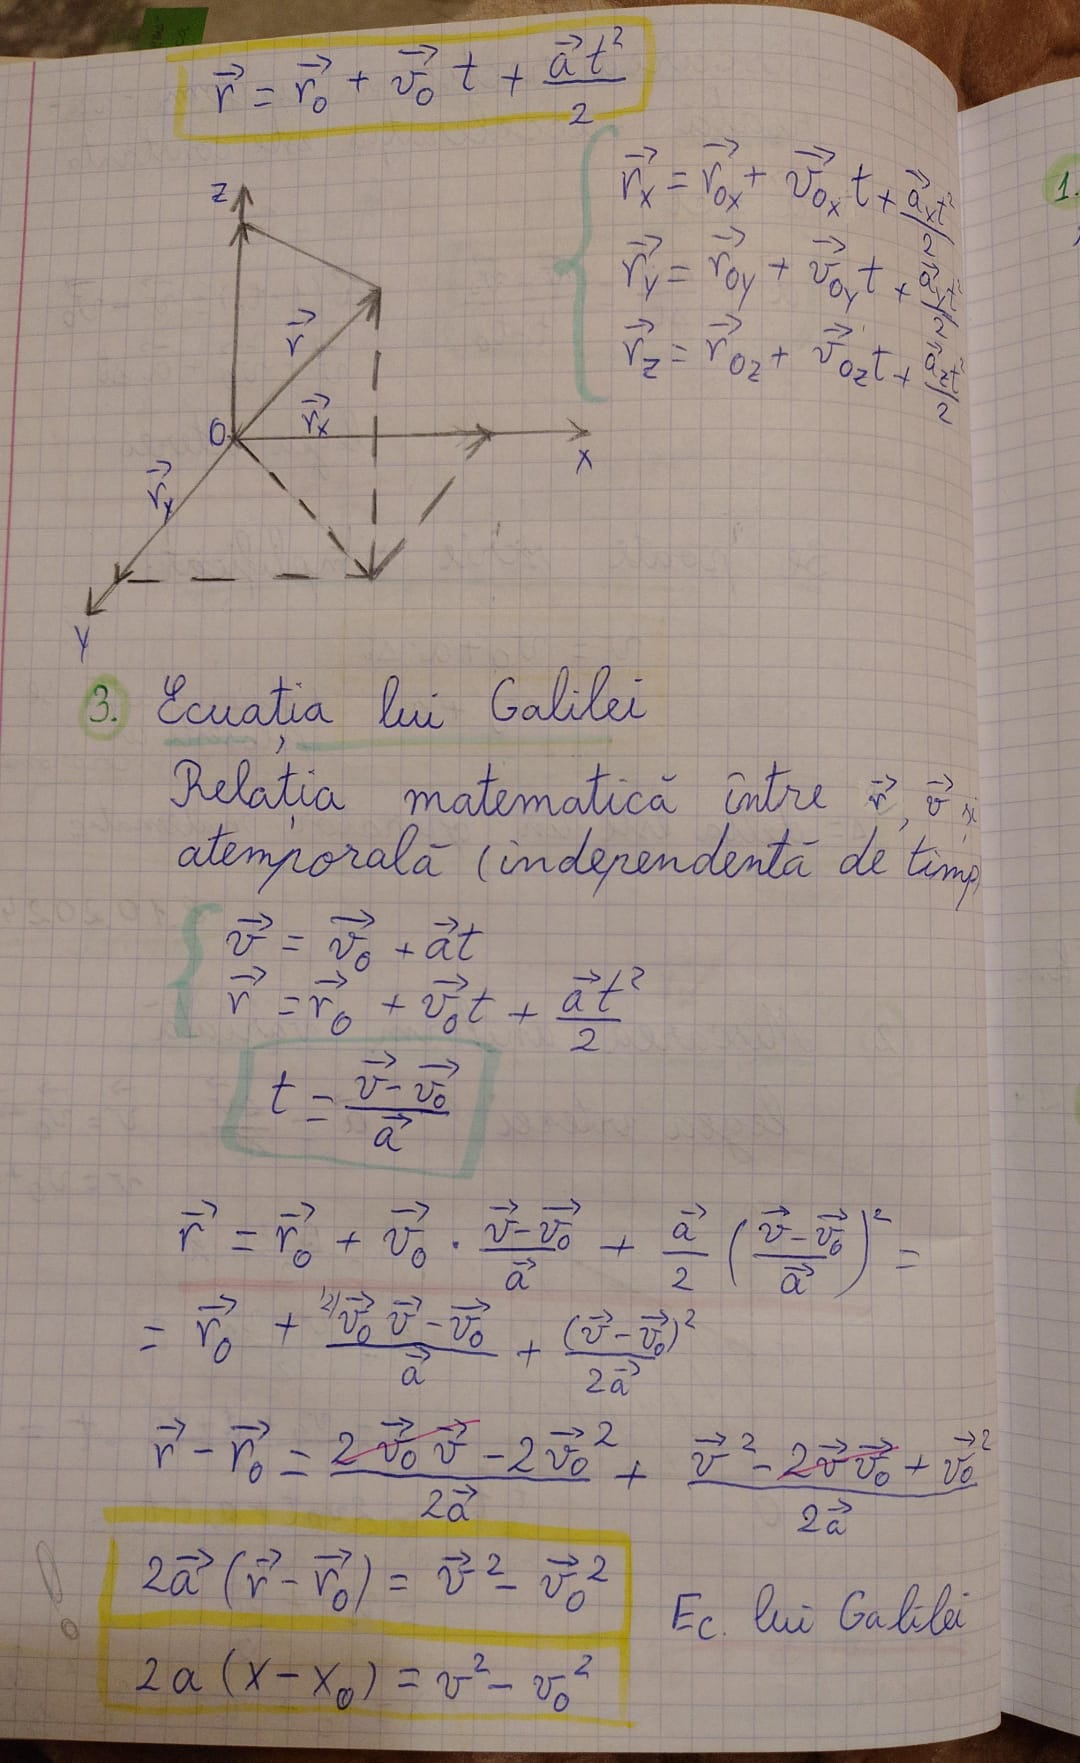 r⃗ = r⃗₀ + v⃗₀ t + a⃗t²/2
r⃗ₓ = r⃗₀ₓ + v⃗₀ₓ t + a⃗ₓt²/2
r⃗ᵧ = r⃗₀ᵧ + v⃗₀ᵧ t + a⃗ᵧt²/2
r⃗_z = r⃗₀_z + v⃗₀_z t + a⃗_z t²/2
z
r⃗
r⃗ₓ
O
x
r⃗ᵧ
y
3. Ecuația lui Galilei
Relația matematică între r⃗, v⃗ și
atemporală (independentă de timp
v⃗ = v⃗₀ + a⃗t
r⃗ = r⃗₀ + v⃗₀t + a⃗t²/2
t = (v⃗ - v⃗₀)/a⃗
r⃗ = r⃗₀ + v⃗₀ · (v⃗ - v⃗₀)/a⃗ + a⃗/2 ((v⃗ - v⃗₀)/a⃗)² =
= r⃗₀ + ²⁾(v⃗₀ v⃗ - v⃗₀)/a⃗ + (v⃗ - v⃗₀)²/2a⃗
r⃗ - r⃗₀ = (2v⃗₀ v⃗ - 2v⃗₀²)/2a⃗ + (v⃗² - 2v⃗v⃗₀ + v⃗₀²)/2a⃗
2a⃗(r⃗ - r⃗₀) = v⃗² - v⃗₀²
Ec. lui Galilei
2a(x - x₀) = v² - v₀²
!
1.